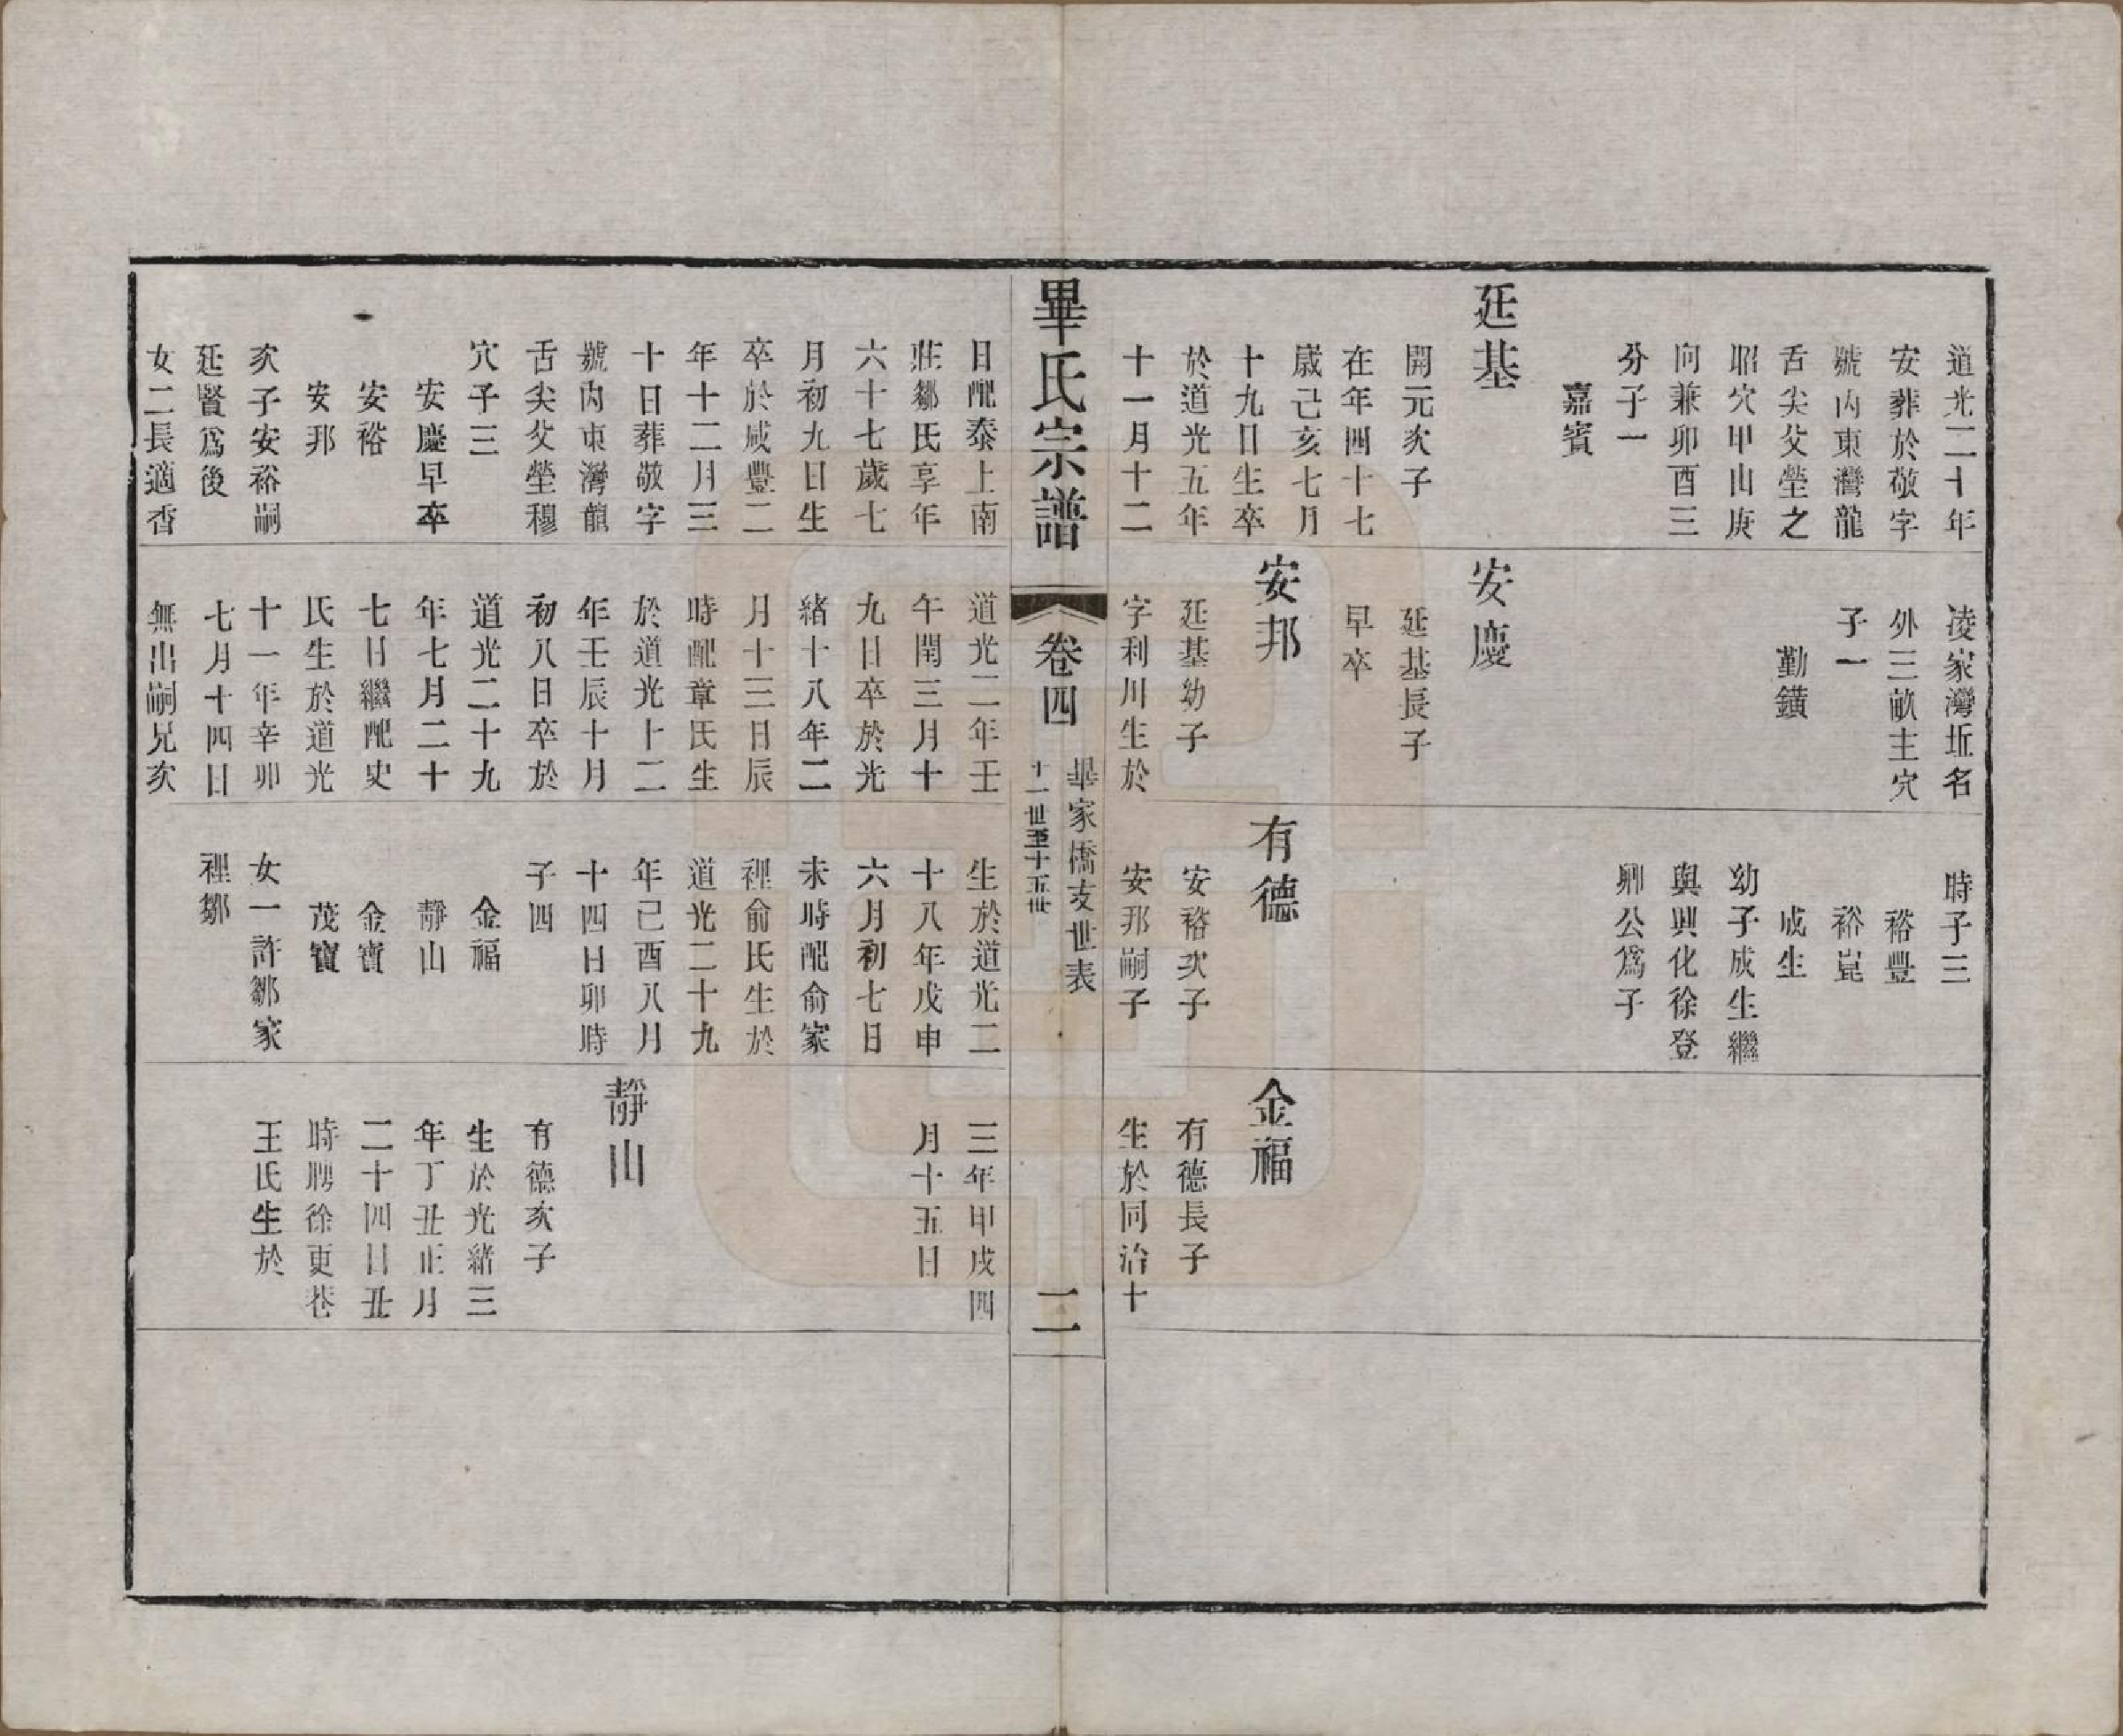 道光二十年
安葬於敬字
號內東灣龍
舌尖父塋之
昭穴甲山庚
向兼卯酉三
分子一
嘉賓
廷基
開元次子
在年四十七
歲己亥七月
十九日生卒
於道光五年
十一月十二
凌家灣坵名
外三畝主穴
子一
勤鐄
安慶
延基長子
早卒
安邦
廷基幼子
字利川生於
時子三
裕豐
裕崑
成生
幼子成生繼
與興化徐登
卿公爲子
有德
安裕次子
安邦嗣子
金福
有德長子
生於同治十
畢氏宗譜
卷四
畢家橋支世表
十一世至十五世
二
日配泰上南
莊鄒氏享年
六十七歲七
月初九日生
卒於咸豐二
年十二月三
十日葬敬字
號內東灣龍
舌尖父塋穆
穴子三
安慶早卒
安裕
安邦
次子安裕嗣
廷賢爲後
女二長適香
道光二年壬
午閏三月十
九日卒於光
緒十八年二
月十三日辰
時配章氏生
於道光十二
年壬辰十月
初八日卒於
道光二十九
年七月二十
七日繼配史
氏生於道光
十一年辛卯
七月十四日
無出嗣兄次
生於道光二
十八年戊申
六月初七日
未時配俞家
裡俞氏生於
道光二十九
年己酉八月
十四日卯時
子四
金福
靜山
金寶
茂寶
女一許鄒家
裡鄒
三年甲戌四
月十五日
靜山
有德次子
生於光緒三
年丁丑正月
二十四日丑
時聘徐更巷
王氏生於